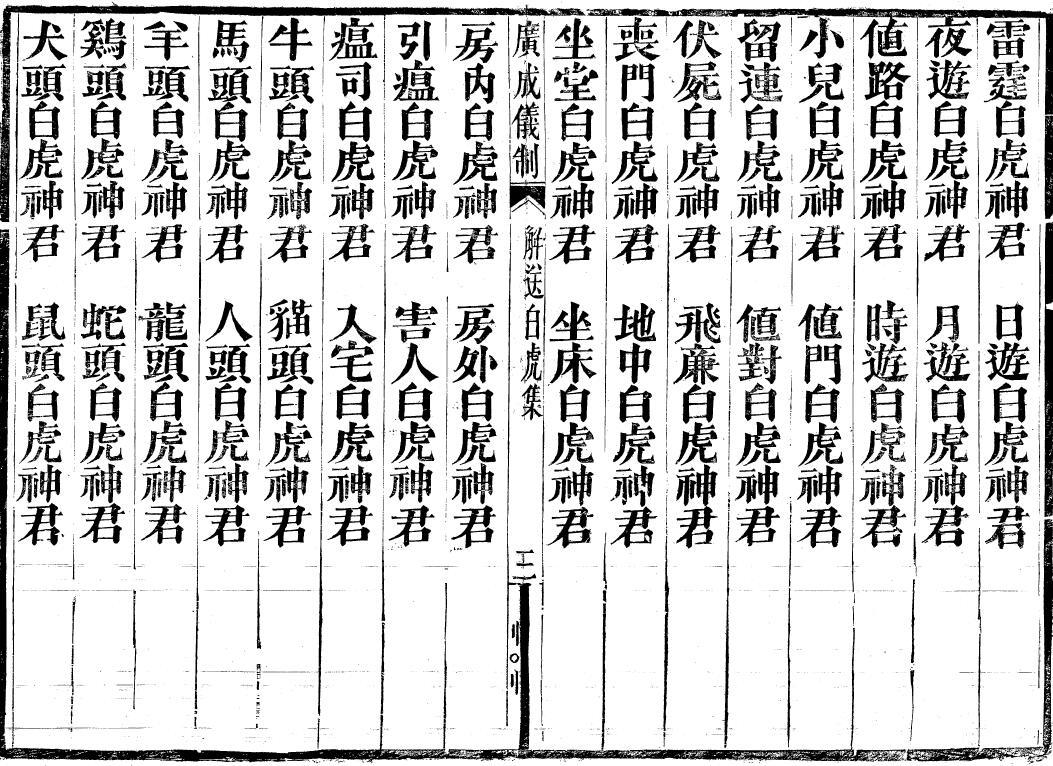 雷霆白虎神君　日遊白虎神君
夜遊白虎神君　月遊白虎神君
値路白虎神君　時遊白虎神君
小兒白虎神君　値門白虎神君
留連白虎神君　値對白虎神君
伏屍白虎神君　飛廉白虎神君
喪門白虎神君　地中白虎神君
坐堂白虎神君　坐床白虎神君
廣成儀制　解送白虎集　二
房內白虎神君　房外白虎神君
引瘟白虎神君　害人白虎神君
瘟司白虎神君　入宅白虎神君
牛頭白虎神君　貓頭白虎神君
馬頭白虎神君　人頭白虎神君
羊頭白虎神君　龍頭白虎神君
鷄頭白虎神君　蛇頭白虎神君
犬頭白虎神君　鼠頭白虎神君